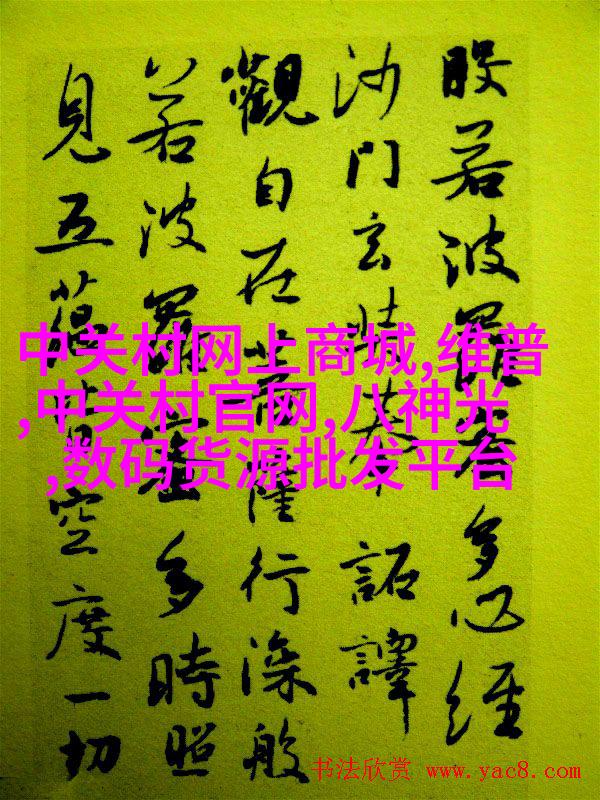 般若波羅蜜多心經
沙門玄奘奉詔譯
觀自在菩薩行深般
若波羅蜜多時照
見五蘊皆空度一切
中关村网上商城,维普
,中关村官网,八神光
,数码货源批发平台
书法欣赏 www.yac8.com